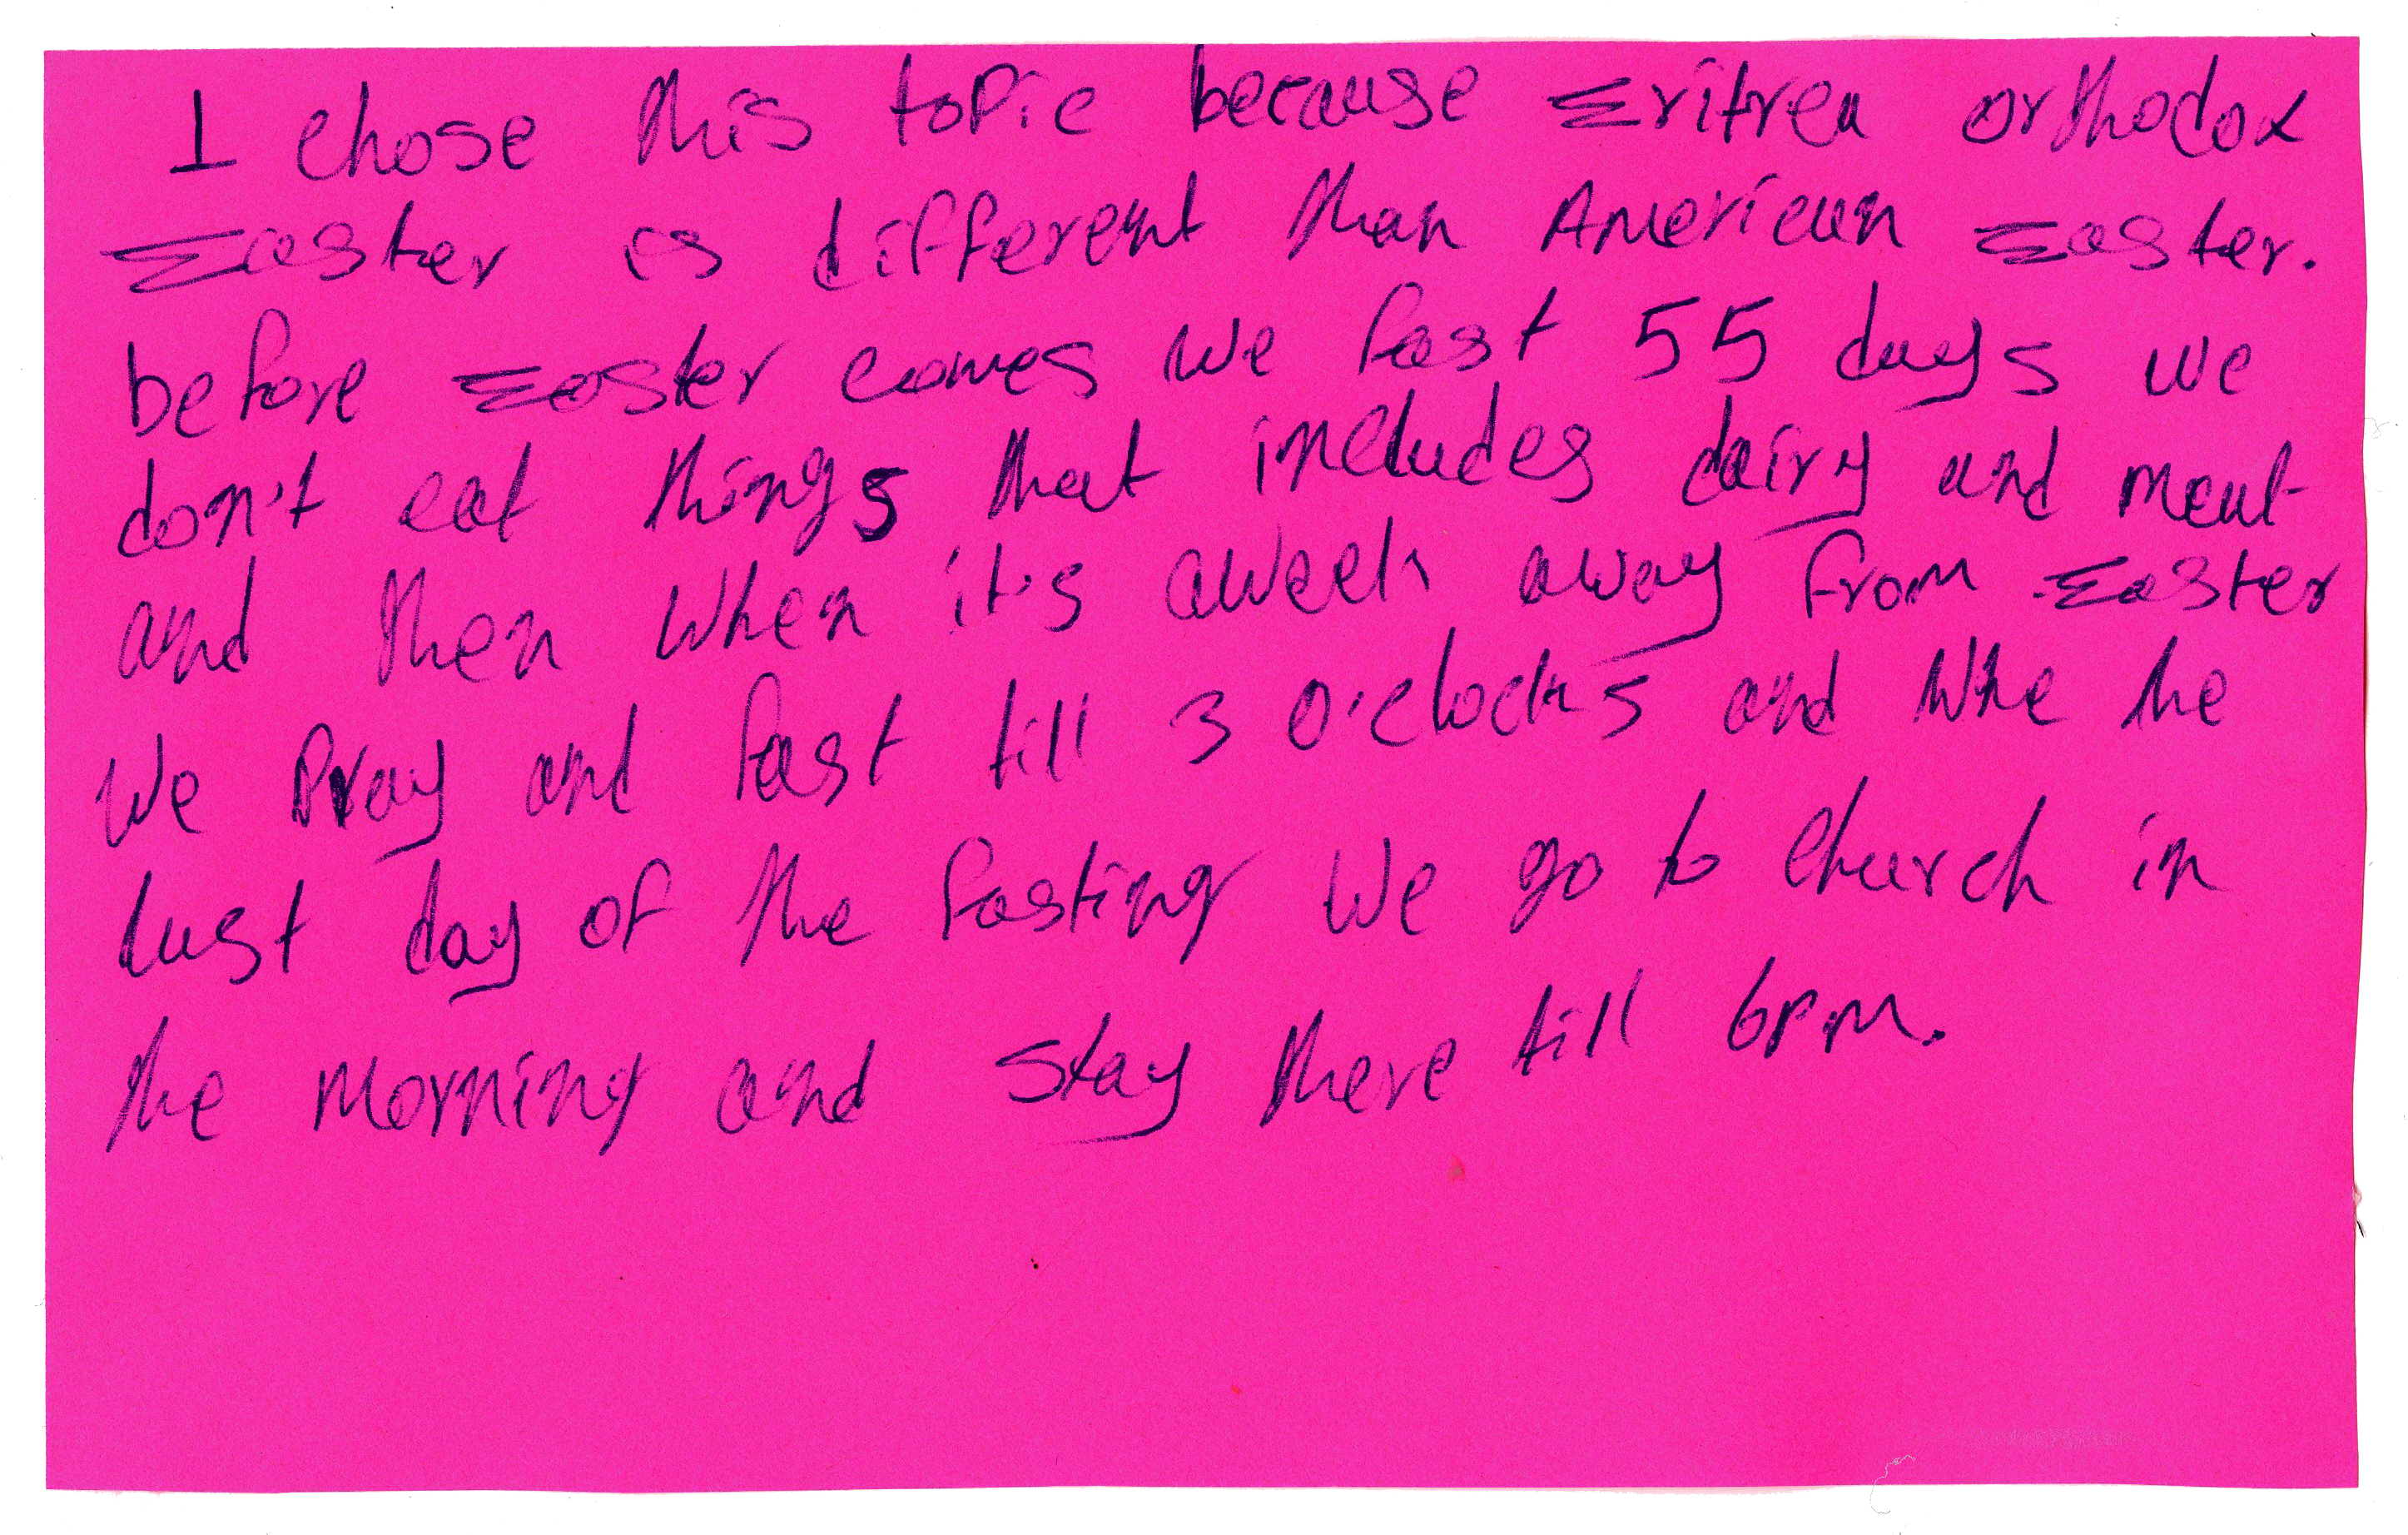 I chose this topic because Eritrea orthodox
Easter is different than American Easter.
before Easter comes we fast 55 days we
don't eat things that includes dairy and meat
and then when it's aweek away from Easter
we pray and fast till 3 o'clocks and whe he
last day of the fasting we go to church in
the morning and stay there till 6pm.